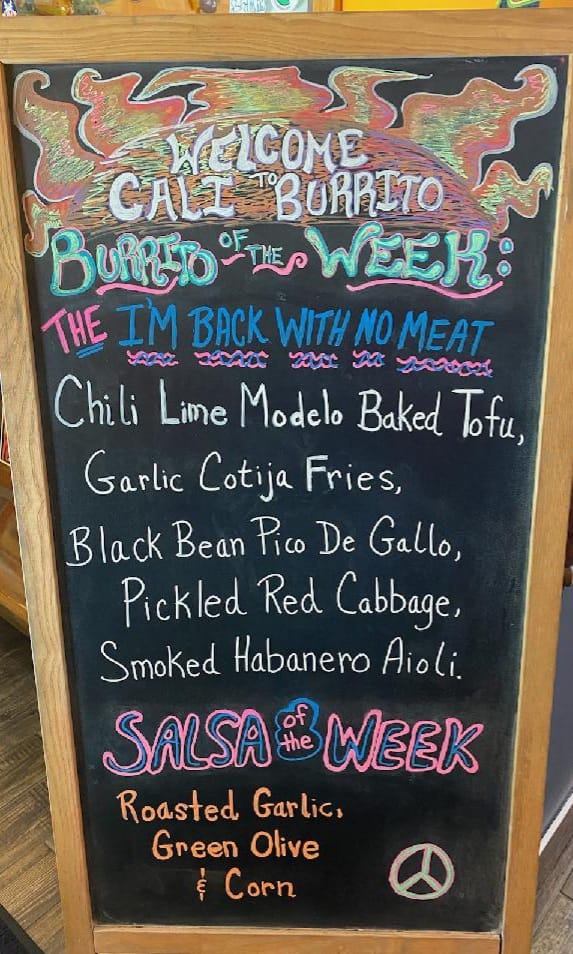 WELCOME
TO
CALI BURRITO
BURRITO OF THE WEEK:
THE I'M BACK WITH NO MEAT
Chili Lime Modelo Baked Tofu,
Garlic Cotija Fries,
Black Bean Pico De Gallo,
Pickled Red Cabbage,
Smoked Habanero Aioli.
SALSA of the WEEK
Roasted Garlic,
Green Olive
& Corn